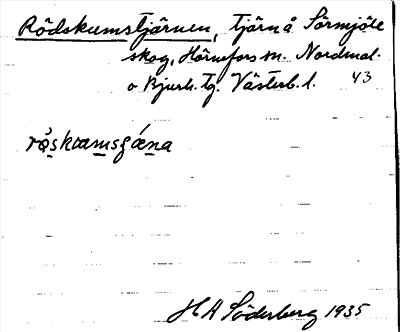 Rödskumstjärnen, tjärn å Sörmjöle
skog, Hörnefors sn. Nordmal.
o Bjurh. tg. Västerb. l. 43
H A Söderberg 1935